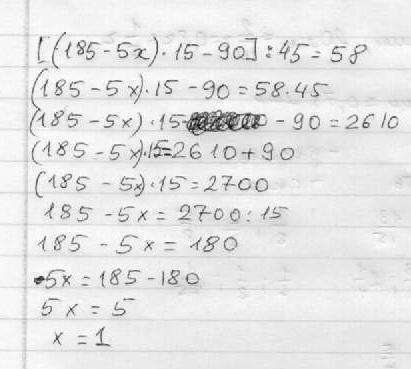 [(185-5x)·15-90]:45=58
(185-5x)·15-90=58·45
(185-5x)·15-90=2610
(185-5x)·15=2610+90
(185-5x)·15=2700
185-5x=2700:15
185-5x=180
5x=185-180
5x=5
x=1